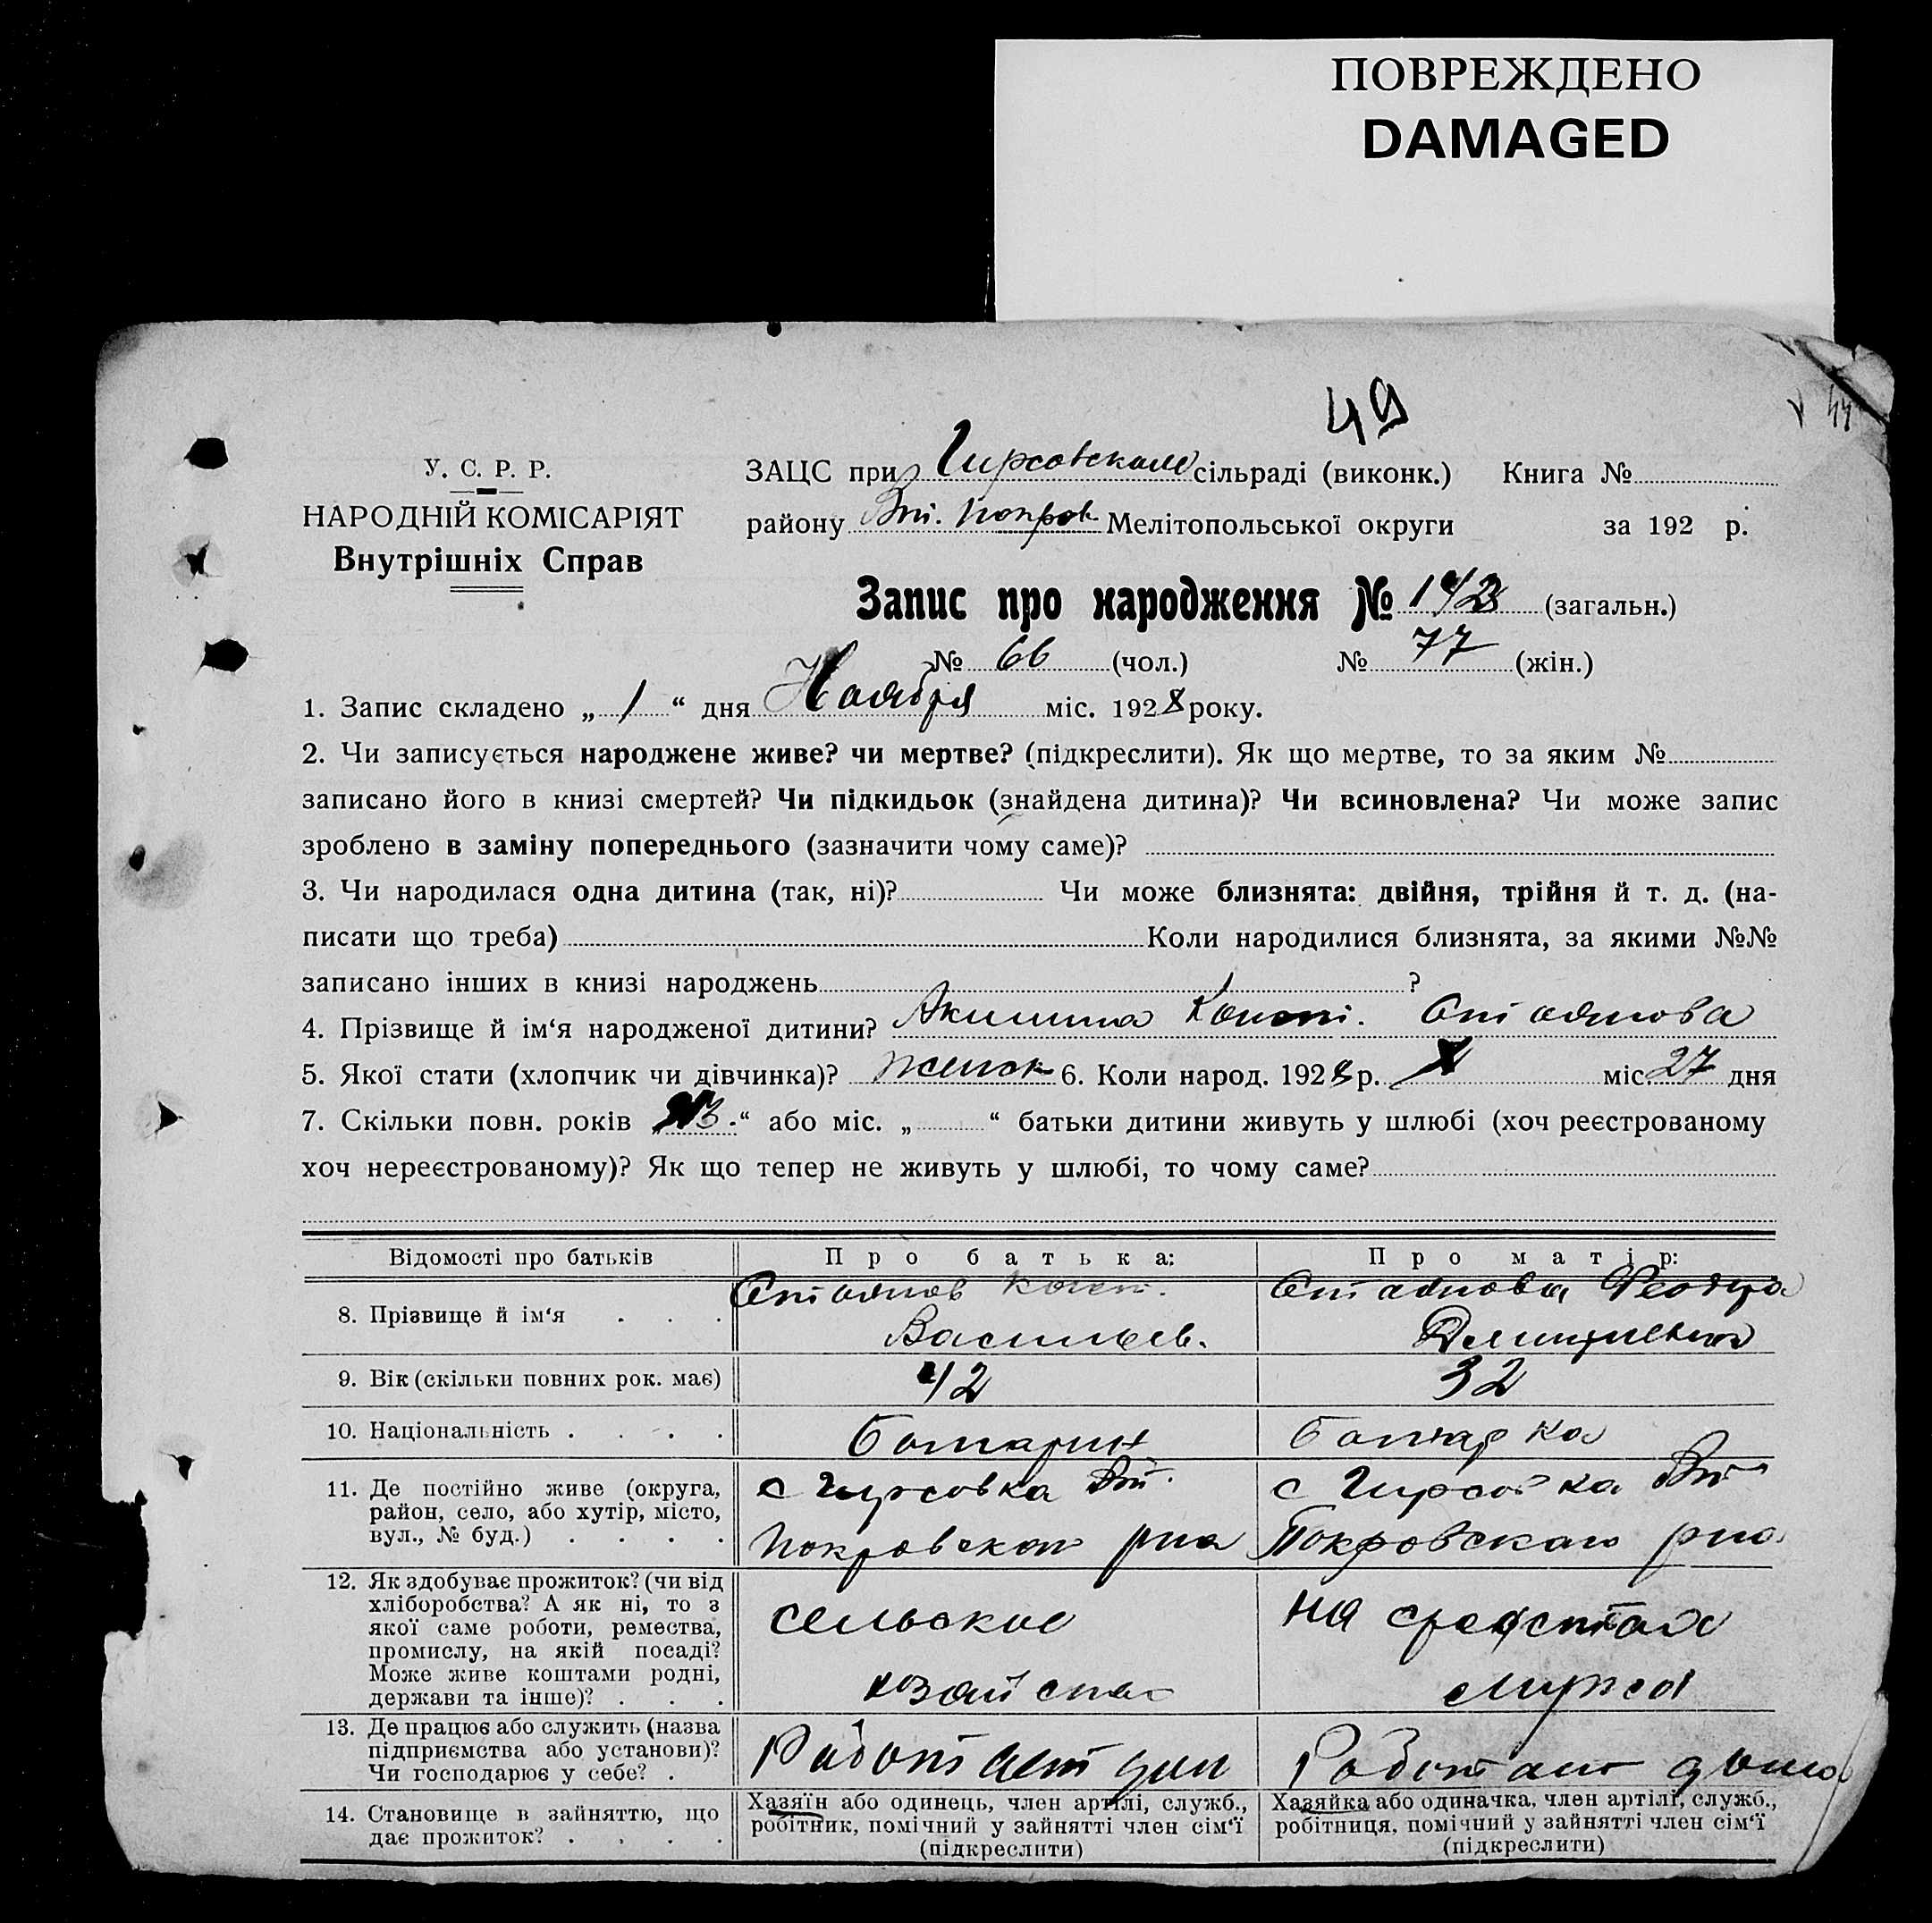 ПОВРЕЖДЕНО
DAMAGED
49
У. С. Р. Р.
НАРОДНІЙ КОМІСАРІЯТ
Внутрішніх Справ
ЗАЦС при Гирсовском сільраді (виконк.) Книга №
району Вт. Покров Мелітопольської округи за 192 р.
Запис про народження № (загальн.)
№ 66 (чол.) № 77 (жін.)
1. Запис складено „ 1 “ дня Ноября міс. 1928 року.
2. Чи записується народжене живе? чи мертве? (підкреслити). Як що мертве, то за яким №
записано його в книзі смертей? Чи підкидьок (знайдена дитина)? Чи всиновлена? Чи може запис
зроблено в заміну попереднього (зазначити чому саме)?
3. Чи народилася одна дитина (так, ні)? Чи може близнята: двійня, трійня й т. д. (на-
писати що треба) Коли народилися близнята, за якими №№
записано інших в книзі народжень ?
4. Прізвище й ім‘я народженої дитини? Конст. Стоянова
5. Якої стати (хлопчик чи дівчинка)? женск 6. Коли народ. 1928 р. X міс. 27 дня
7. Скільки повн. років „ 13. “ або міс. „ “ батьки дитини живуть у шлюбі (хоч реєстрованому
хоч нереєстрованому)? Як що тепер не живуть у шлюбі, то чому саме?
Відомості про батьків Про батька: Про матір:
8. Прізвище й ім‘я Стоянов Конст. Васильев. Стоянова Феодора
9. Вік (скільки повних рок. має) 42 32
10. Національність Болгарин Болгарка
11. Де постійно живе (округа,
район, село, або хутір, місто,
вул., № буд.)
с Гирсовка Вт.
Покровского рна
с Гирсовка Вт
Покровского рна
12. Як здобуває прожиток? (чи від
хліборобства? А як ні, то з
якої саме роботи, ремества,
промислу, на якій посаді?
Може живе коштами родні,
держави та інше)?
сельское
хозяйство
на средствах
мужа
13. Де працює або служить (назва
підприємства або установи)?
Чи господарює у себе?
Работает дом
Работает дома
14. Становище в зайняттю, що
дає прожиток?
Хазяїн або одинець, член артілі, служб.,
робітник, помічний у зайнятті член сім‘ї
(підкреслити)
Хазяйка або одиначка, член артілі, служб.,
робітниця, помічний у зайнятті член сім‘ї
(підкреслити)